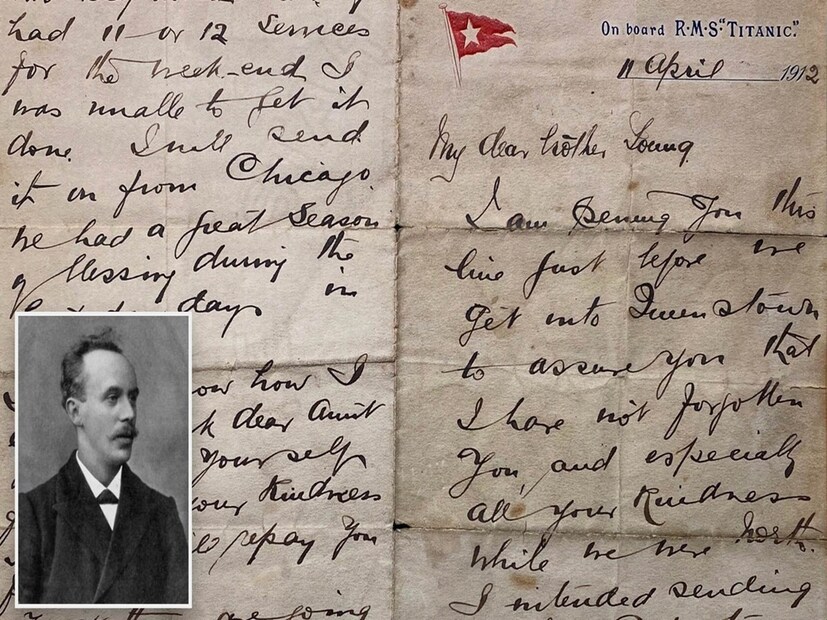 On board R·M·S·"TITANIC."
11 April 1912
My dear brother Young
I am penning you this
line just before we
get into Queenstown
to assure you that
I have not forgotten
you, and especially
all your Kindness
while we were North.
I intended sending
had 11 or 12 services
for the week-end I
was unable to get it
done. I will send
it on from Chicago.
We had a great season
of blessing during the
days in
how I
dear Aunt
yourself
your Kindness
repay you
are going